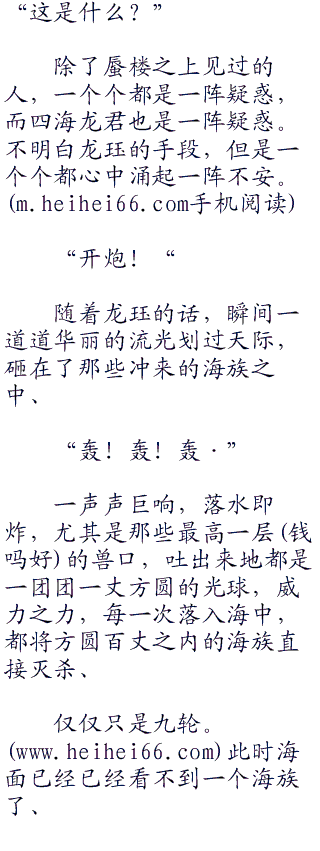 “这是什么？”
除了蜃楼之上见过的
人，一个个都是一阵疑惑，
而四海龙君也是一阵疑惑。
不明白龙珏的手段，但是一
个个都心中涌起一阵不安。
(m.heihei66.com手机阅读)
“开炮！“
随着龙珏的话，瞬间一
道道华丽的流光划过天际，
砸在了那些冲来的海族之
中、
“轰！轰！轰·”
一声声巨响，落水即
炸，尤其是那些最高一层(钱
吗好)的兽口，吐出来地都是
一团团一丈方圆的光球，威
力之力，每一次落入海中，
都将方圆百丈之内的海族直
接灭杀、
仅仅只是九轮。
(www.heihei66.com)此时海
面已经已经看不到一个海族
了、